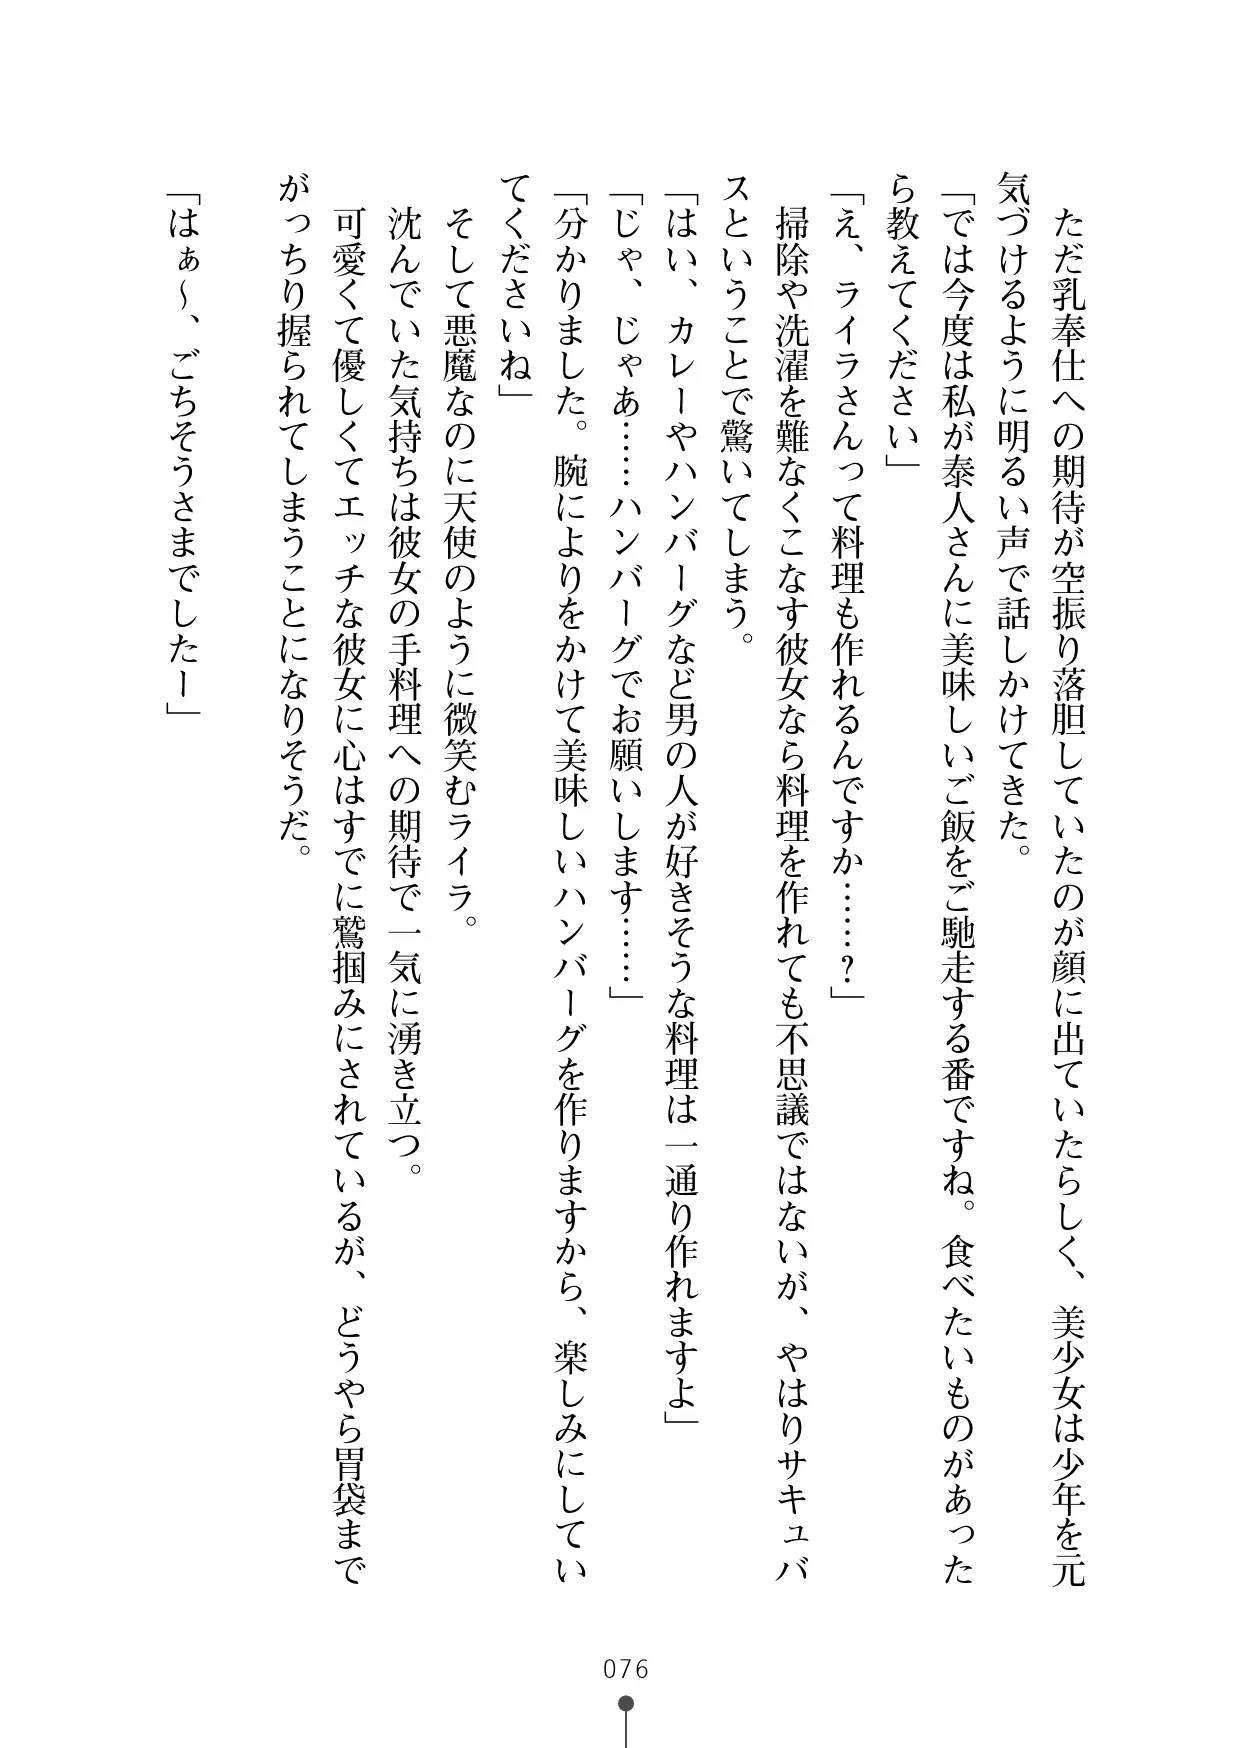 ただ乳奉仕への期待が空振り落胆していたのが顔に出ていたらしく、美少女は少年を元
気づけるように明るい声で話しかけてきた。
「では今度は私が泰人さんに美味しいご飯をご馳走する番ですね。食べたいものがあった
ら教えてください」
「え、ライラさんって料理も作れるんですか……?」
掃除や洗濯を難なくこなす彼女なら料理を作れても不思議ではないが、やはりサキュバ
スということで驚いてしまう。
「はい、カレーやハンバーグなど男の人が好きそうな料理は一通り作れますよ」
「じゃ、じゃあ……ハンバーグでお願いします……」
「分かりました。腕によりをかけて美味しいハンバーグを作りますから、楽しみにしてい
てくださいね」
そして悪魔なのに天使のように微笑むライラ。
沈んでいた気持ちは彼女の手料理への期待で一気に湧き立つ。
可愛くて優しくてエッチな彼女に心はすでに鷲掴みにされているが、どうやら胃袋まで
がっちり握られてしまうことになりそうだ。
「はぁ～、ごちそうさまでしたー」
076